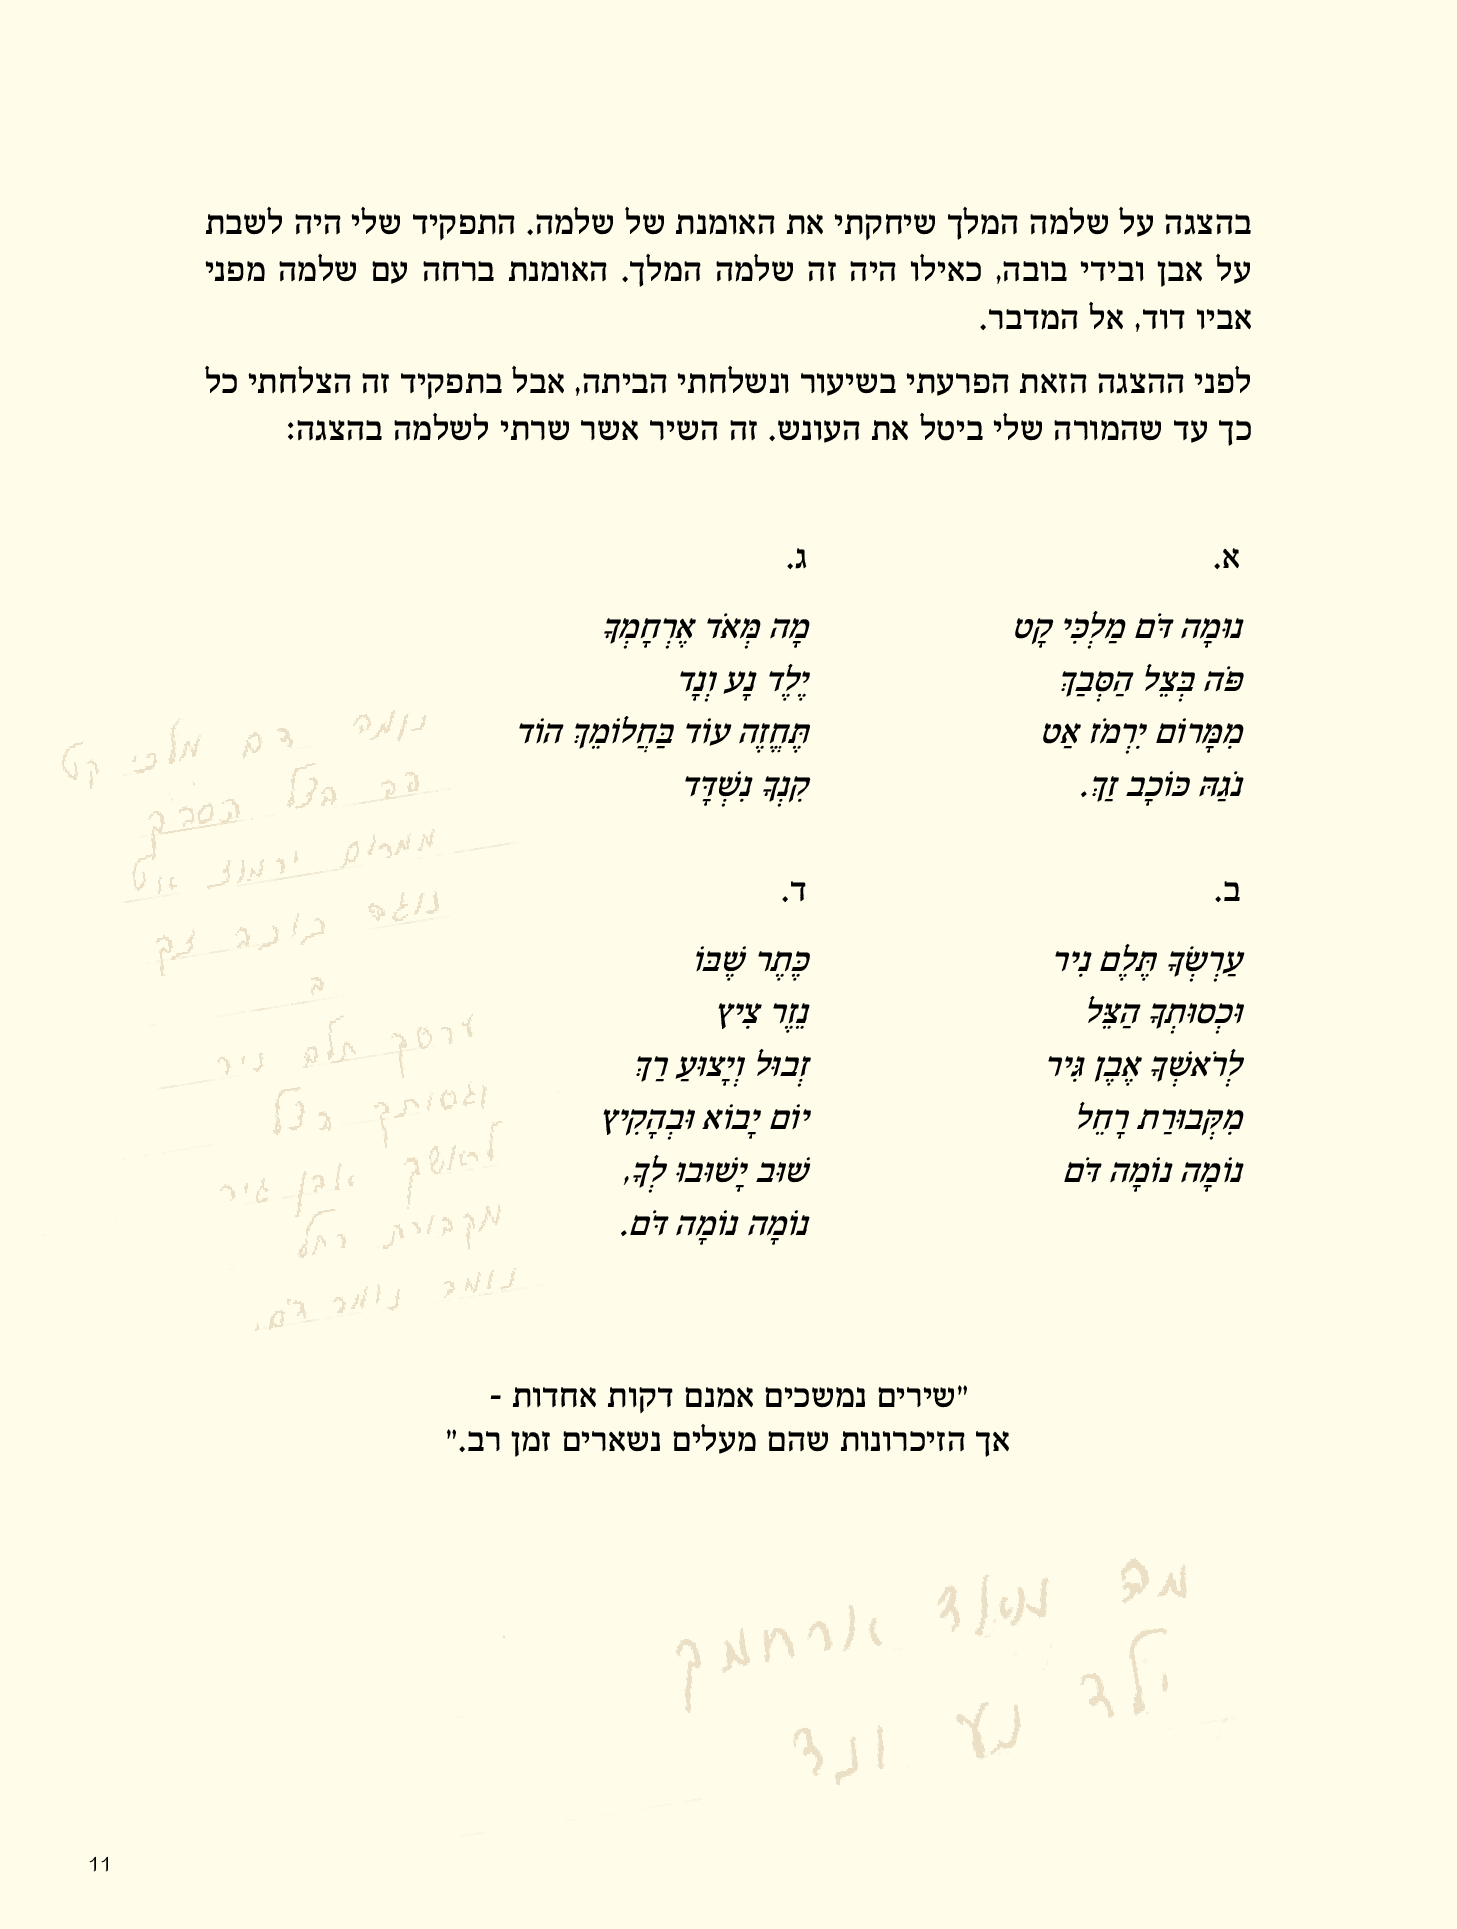 בהצגה על שלמה המלך שיחקתי את האומנת של שלמה. התפקיד שלי היה לשבת
על אבן ובידי בובה, כאילו היה זה שלמה המלך. האומנת ברחה עם שלמה מפני
אביו דוד, אל המדבר.
לפני ההצגה הזאת הפרעתי בשיעור ונשלחתי הביתה, אבל בתפקיד זה הצלחתי כל
כך עד שהמורה שלי ביטל את העונש. זה השיר אשר שרתי לשלמה בהצגה:
א.
נוּמָה דֹּם מַלְכִּי קָט
פֹּה בְּצֵל הַסְּבַךְ
מִמָּרוֹם יִרְמֹז אַט
נֹגַהּ כּוֹכָב זַךְ.
ב.
עַרְשְׂךָ תֶּלֶם נִיר
וּכְסוּתְךָ הַצֵּל
לְרֹאשְׁךָ אֶבֶן גִּיר
מִקְּבוּרַת רָחֵל
נוּמָה נוּמָה דֹּם
ג.
מָה מְּאֹד אֶרְחָמְךָ
יֶלֶד נָע וְנָד
תֶּחֱזֶה עוֹד בַּחֲלוֹמֵךְ הוֹד
קִנְךָ נִשְׁדָּד
ד.
כֶּתֶר שְׁבוֹ
נֵזֶר צִיץ
זְבוּל וְיָצוּעַ רַךְ
יוֹם יָבוֹא וּבְהָקִיץ
שׁוּב יָשׁוּבוּ לְךָ,
נוֹמָה נוֹמָה דֹּם.
נומה דם מלכי קט
פה בצל הסבך
ממרום ירמוז אט
נוגה כוכב זך
ב
ערסך תלם ניר
וכסותך הצל
לראשך אבן גיר
מקבורת רחל
נומה נומה דם.
"שירים נמשכים אמנם דקות אחדות -
אך הזיכרונות שהם מעלים נשארים זמן רב."
מה מאוד ארחמך
ילד נע ונד
11